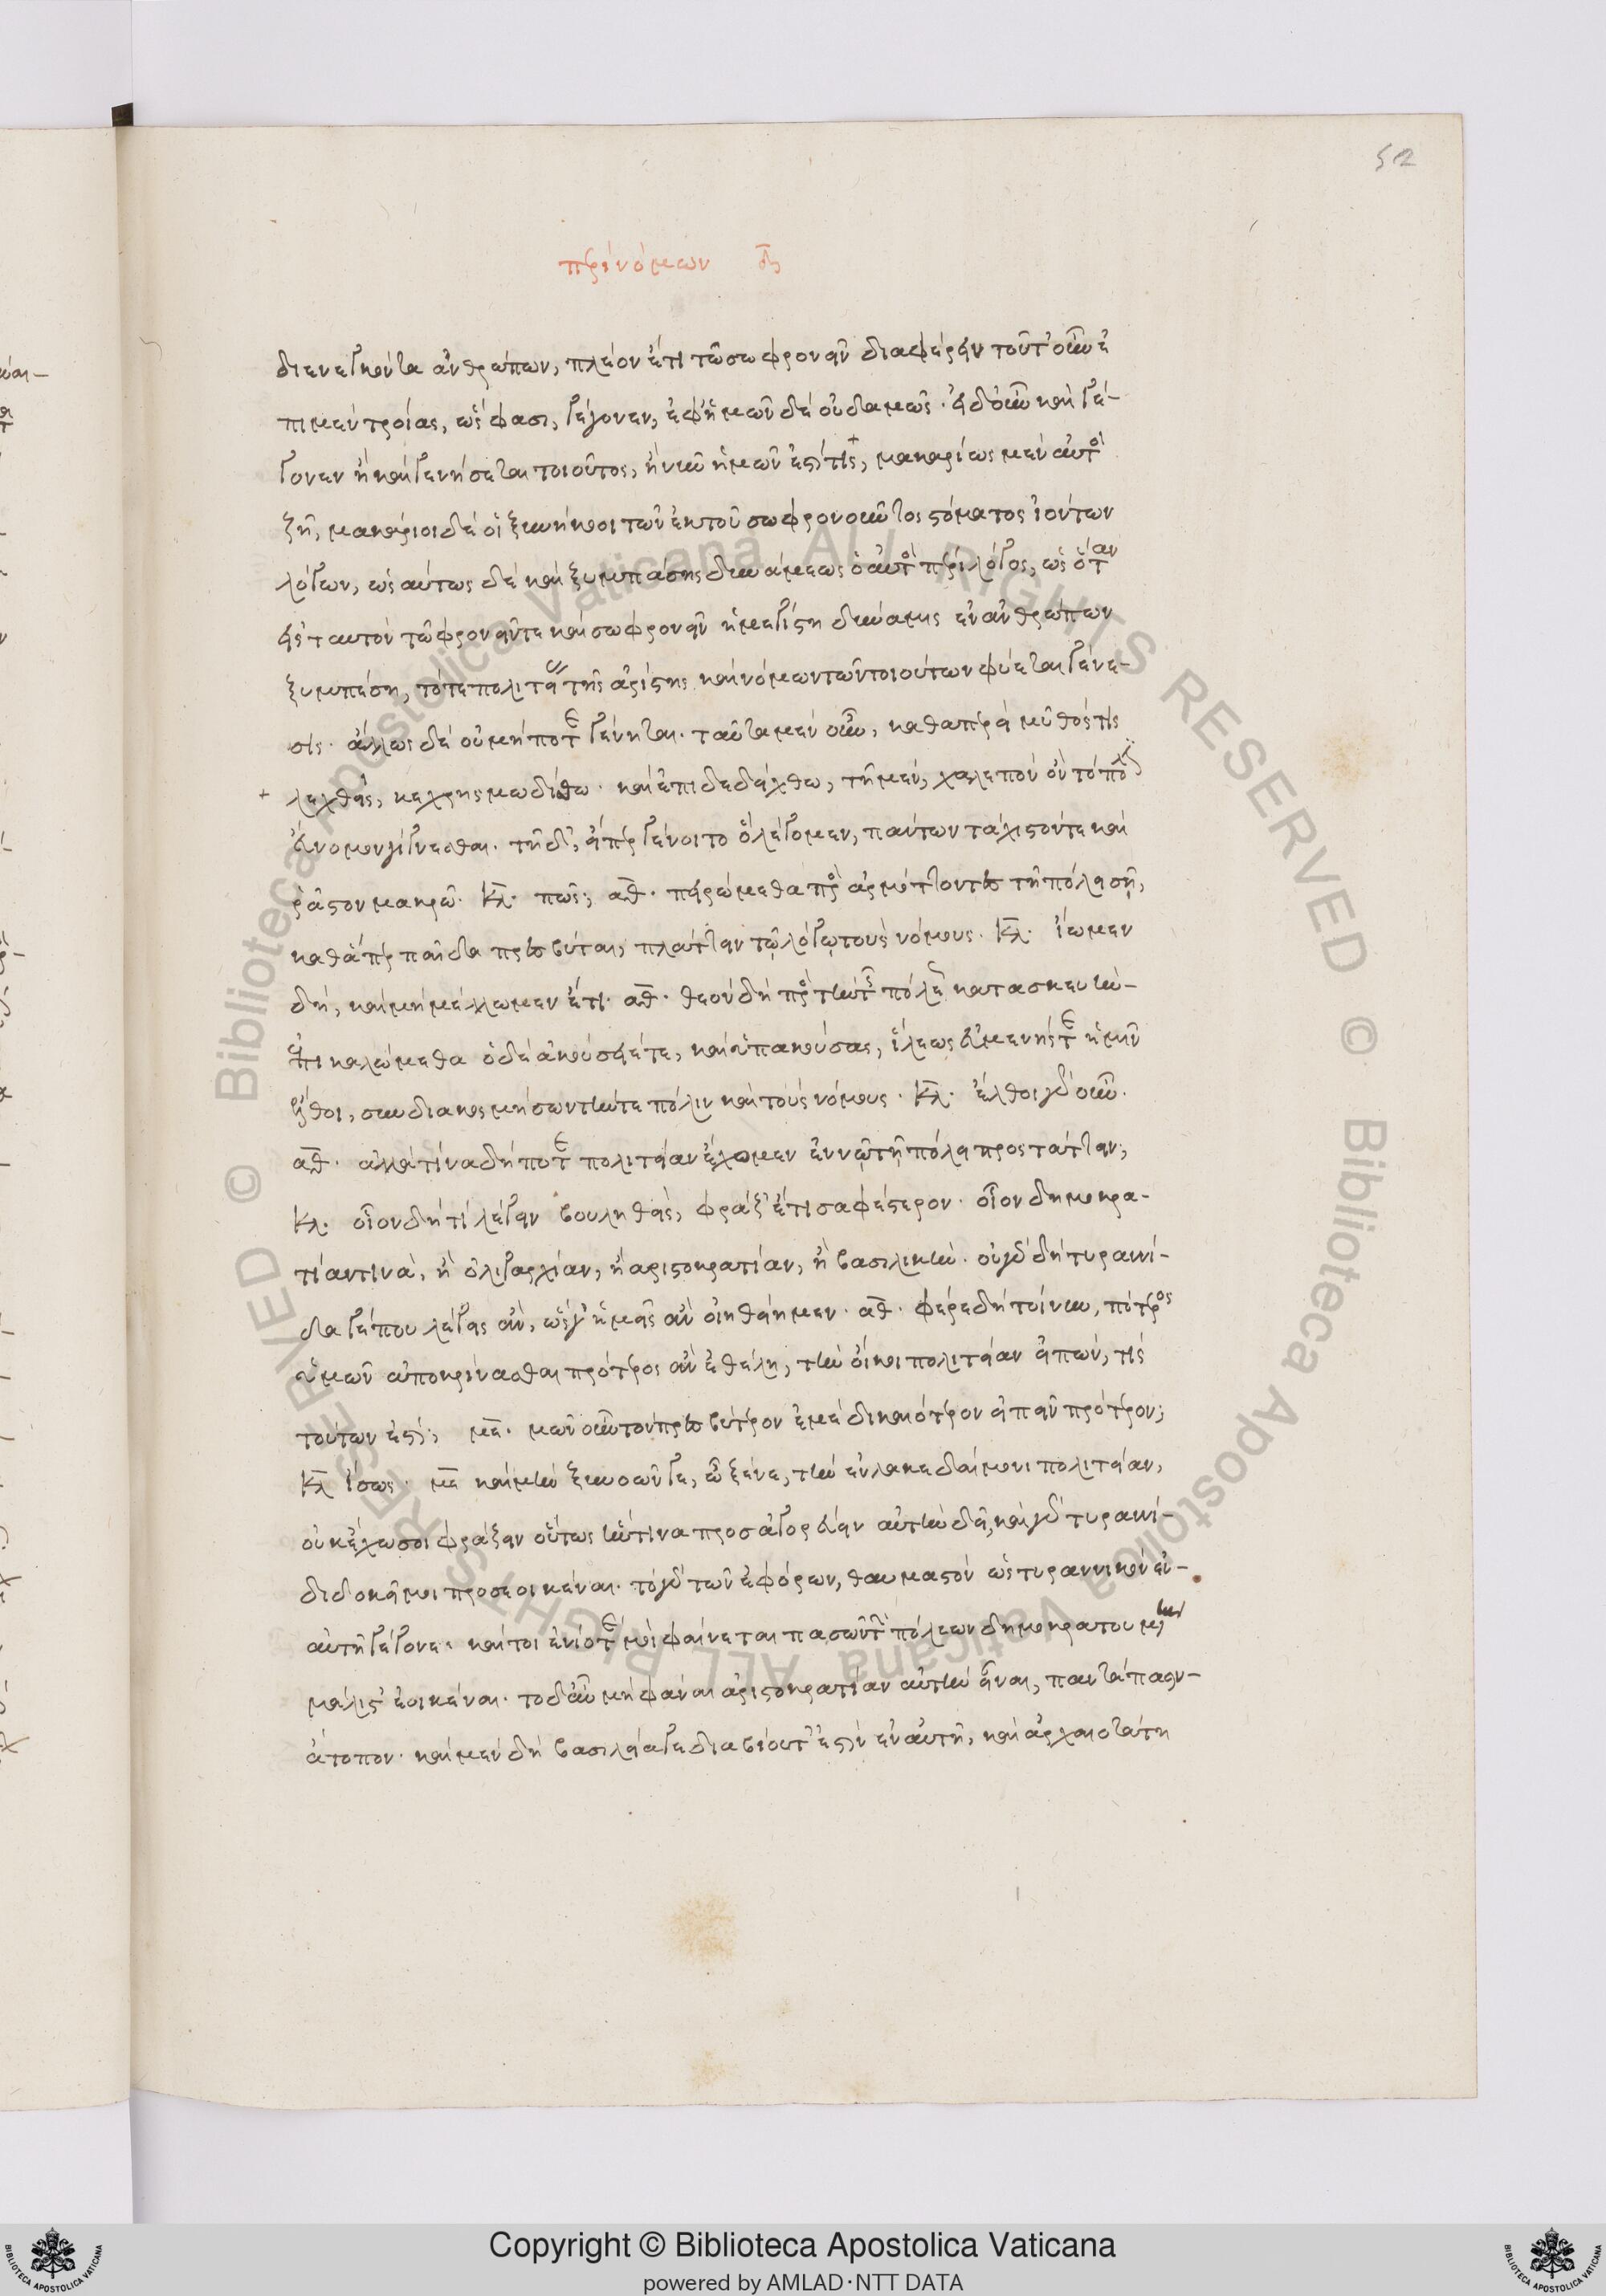 52
περὶ νόμων δ
διενεγκόντα ἀνθρώπων, πλέον ἔτι τῶ σωφρονεῖν διαφέρειν τοῦτ' οὖν ἐ
πὶ μὲν τροίας, ὥς φασι, γέγονεν, ἐφ' ἡμῶν δὲ οὐδαμῶς. εἰ δ' οὖν καὶ γέ-
γονεν ἢ καὶ γενήσεται τοιοῦτος, ἢ νῦν ἡμῶν ἐστί τις, μακαρίως μὲν αὐτὸς
ζῇ, μακάριοι δὲ οἱ ξυνήκοοι τῶν ἐκ τοῦ σωφρονοῦντος στόματος ἰόντων
λόγων, ὡσαύτως δὲ καὶ ξυμπάσης δυνάμεως ὁ αὐτὸς περὶ λόγος, ὡς ὅταν
εἰς ταυτὸν τῶ φρονεῖν τε καὶ σωφρονεῖν ἡ μεγίστη δύναμις ἐν ἀνθρώπων
ξυμπέση, τότε πολιτείας τῆς ἀρίστης καὶ νόμων τῶν τοιούτων φύεται γένε-
σις. ἄλλως δὲ οὐ μήποτε γένηται. ταῦτα μὲν οὖν, καθαπερεὶ μῦθός τις
λεχθεὶς, κεχρησμωδήσθω. καὶ ἐπιδεδείχθω, τῆ μὲν, χαλεπὸν ὂν τὸ πόλιν
εὔνομον γίγνεσθαι. τῆ δ', εἴπερ γένοιτο ὃ λέγομεν, πάντων τάχιστόν τε καὶ
ῥᾶστον μακρῶ. Κλ. πῶς; αθ. πειρώμεθα προσαρμόττοντες τῆ πόλει σῇ,
καθάπερ παῖδα πρεσβύται, πλάττειν τῷ λόγῳ τοὺς νόμους. Κλ. ἴωμεν
δὴ, καὶ μὴ μέλλωμεν ἔτι. αθ. θεὸν δὴ πρὸς τὴν τῆς πόλεως κατασκευὴν
ἐπικαλώμεθα ὁ δὲ ἀκούσειέ τε, καὶ ὑπακούσας, ἵλεως εὐμενής τε ἡμῖν
ἔλθοι, συνδιακοσμήσων τήν τε πόλιν καὶ τοὺς νόμους. Κλ. ἔλθοι γὰρ οὖν.
αθ. ἀλλὰ τίνα δή ποτε πολιτείαν ἔχομεν ἐν νῷ τῇ πόλει προστάττειν;
Κλ. οἷον δὴ τί λέγειν βουληθεὶς, φράζ' ἔτι σαφέστερον. οἷον δημοκρα-
τίαν τινὰ, ἢ ὀλιγαρχίαν, ἢ ἀριστοκρατίαν, ἢ βασιλικήν. οὐ γὰρ δὴ τυραννί-
δα γέ που λέγεις ἂν, ὥς γ' ἡμεῖς ἂν οἰηθείημεν. αθ. φέρε δὴ τοίνυν, πότερος
ὑμῶν ἀποκρίνασθαι πρότερος ἂν ἐθέλη, τὴν οἴκοι πολιτείαν εἰπὼν, τίς
τούτων ἐστί; με. μῶν οὖν τὸν πρεσβύτερον ἐμὲ δικαιότερον εἰπεῖν πρότερον;
Κλ ἴσως. με καὶ μὴν ξυνοῶν γε, ὦ ξένε, τὴν ἐν λακεδαίμονι πολιτείαν,
οὐκ ἔχω σοι φράζειν οὕτως ἥντινα προσαγορεύειν αὐτὴν δεῖ, καὶ γὰρ τυραννί-
δι δοκεῖ μοι προσεοικέναι. τὸ γὰρ τῶν ἐφόρων, θαυμαστὸν ὡς τυραννικὸν ἐν
αὐτῇ γέγονε. καί τοι ἐνίοτε μοὶ φαίνεται πασῶν τῶν πόλεων δημοκρατουμένη
μάλιστ' ἐοικέναι. τὸ δ' αὖ μὴ φάναι ἀριστοκρατίαν αὐτὴν εἶναι, παντάπασιν
ἄτοπον. καὶ μὲν δὴ βασιλεία γε διὰ βίου τ' ἐστὶν ἐν αὐτῇ, καὶ ἀρχαιοτάτη